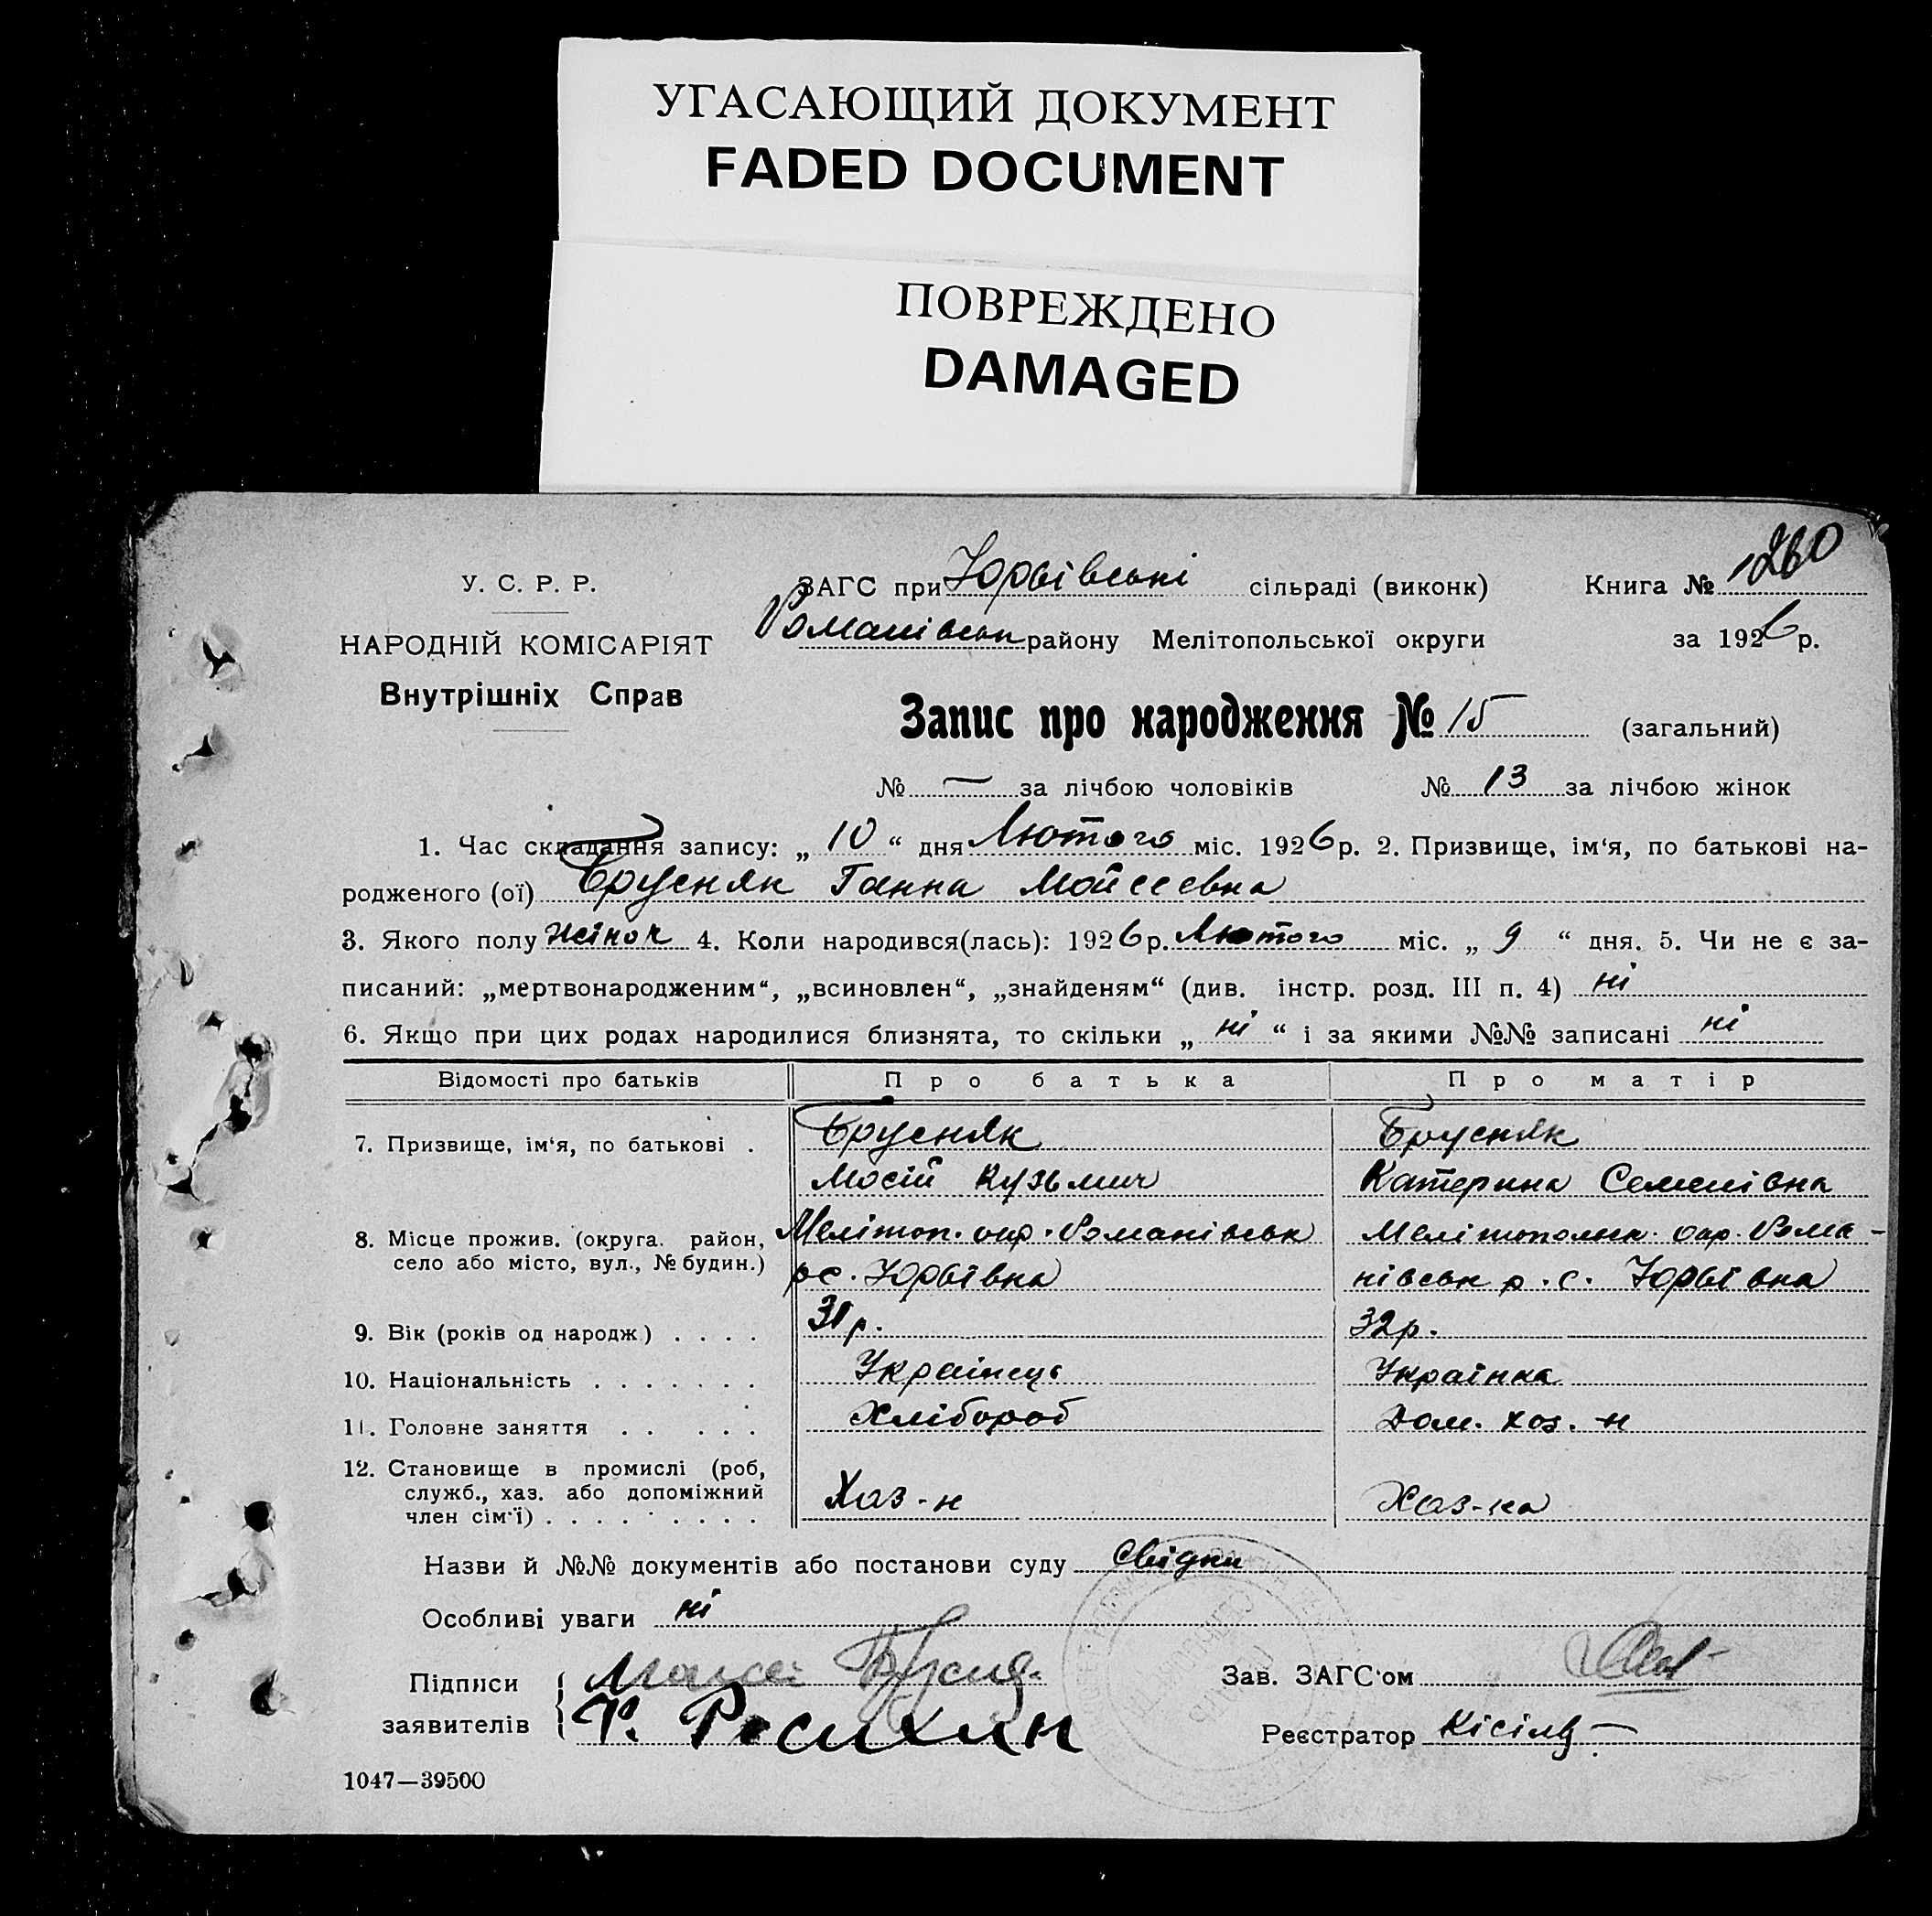 УГАСАЮЩИЙ ДОКУМЕНТ
FADED DOCUMENT
ПОВРЕЖДЕНО
DAMAGED
У. С. Р. Р.
НАРОДНІЙ КОМІСАРІЯТ
Внутрішніх Справ
ЗАГС при Юрьївські сільраді (виконк) Книга №
Романівськ району Мелітопольської округи за 1926 р.
Запис про народження № 15 (загальний)
№ — за лічбою чоловіків № 13 за лічбою жінок
1. Час складання запису: „ 10 “ дня Лютого міс. 1926 р. 2. Призвище, ім‘я, по батькові на-
родженого (ої) Брусняк Ганна Мойсеевна
3. Якого полу жіноч 4. Коли народився(лась): 1926 р. Лютого міс. „ 9 “ дня. 5. Чи не є за-
писаний: „мертвонародженим“, „всиновлен“, „знайденям“ (див. інстр. розд. III п. 4) ні
6. Якщо при цих родах народилися близнята, то скільки „ ні “ і за якими №№ записані ні
Відомості про батьків Про батька Про матір
7. Призвище, ім‘я, по батькові . Брусняк Брусняк
Мосій Кузьмич Катерина Семенівна
8. Місце прожив. (округа. район, село або місто, вул., № будин.) Мелітоп. окр. Романівськ Мелітопольск. окр. Рома-
р с. Юрьївка нівськ р. с. Юрьївка
9. Вік (років од народж) . . . . 31 р. 32 р.
10. Національність . . . . . . . Українець Українка
11. Головне заняття . . . . . Хлібороб Дом. хоз. -н
12. Становище в промислі (роб, служб., хаз. або допоміжний член сім‘ї) . . . . . . . . . Хаз-н Хаз-ка
Назви й №№ документів або постанови суду Свідки
Особливі уваги ні
Підписи
заявителів
Зав. ЗАГС‘ом
Реєстратор Кісіль
1047—39500